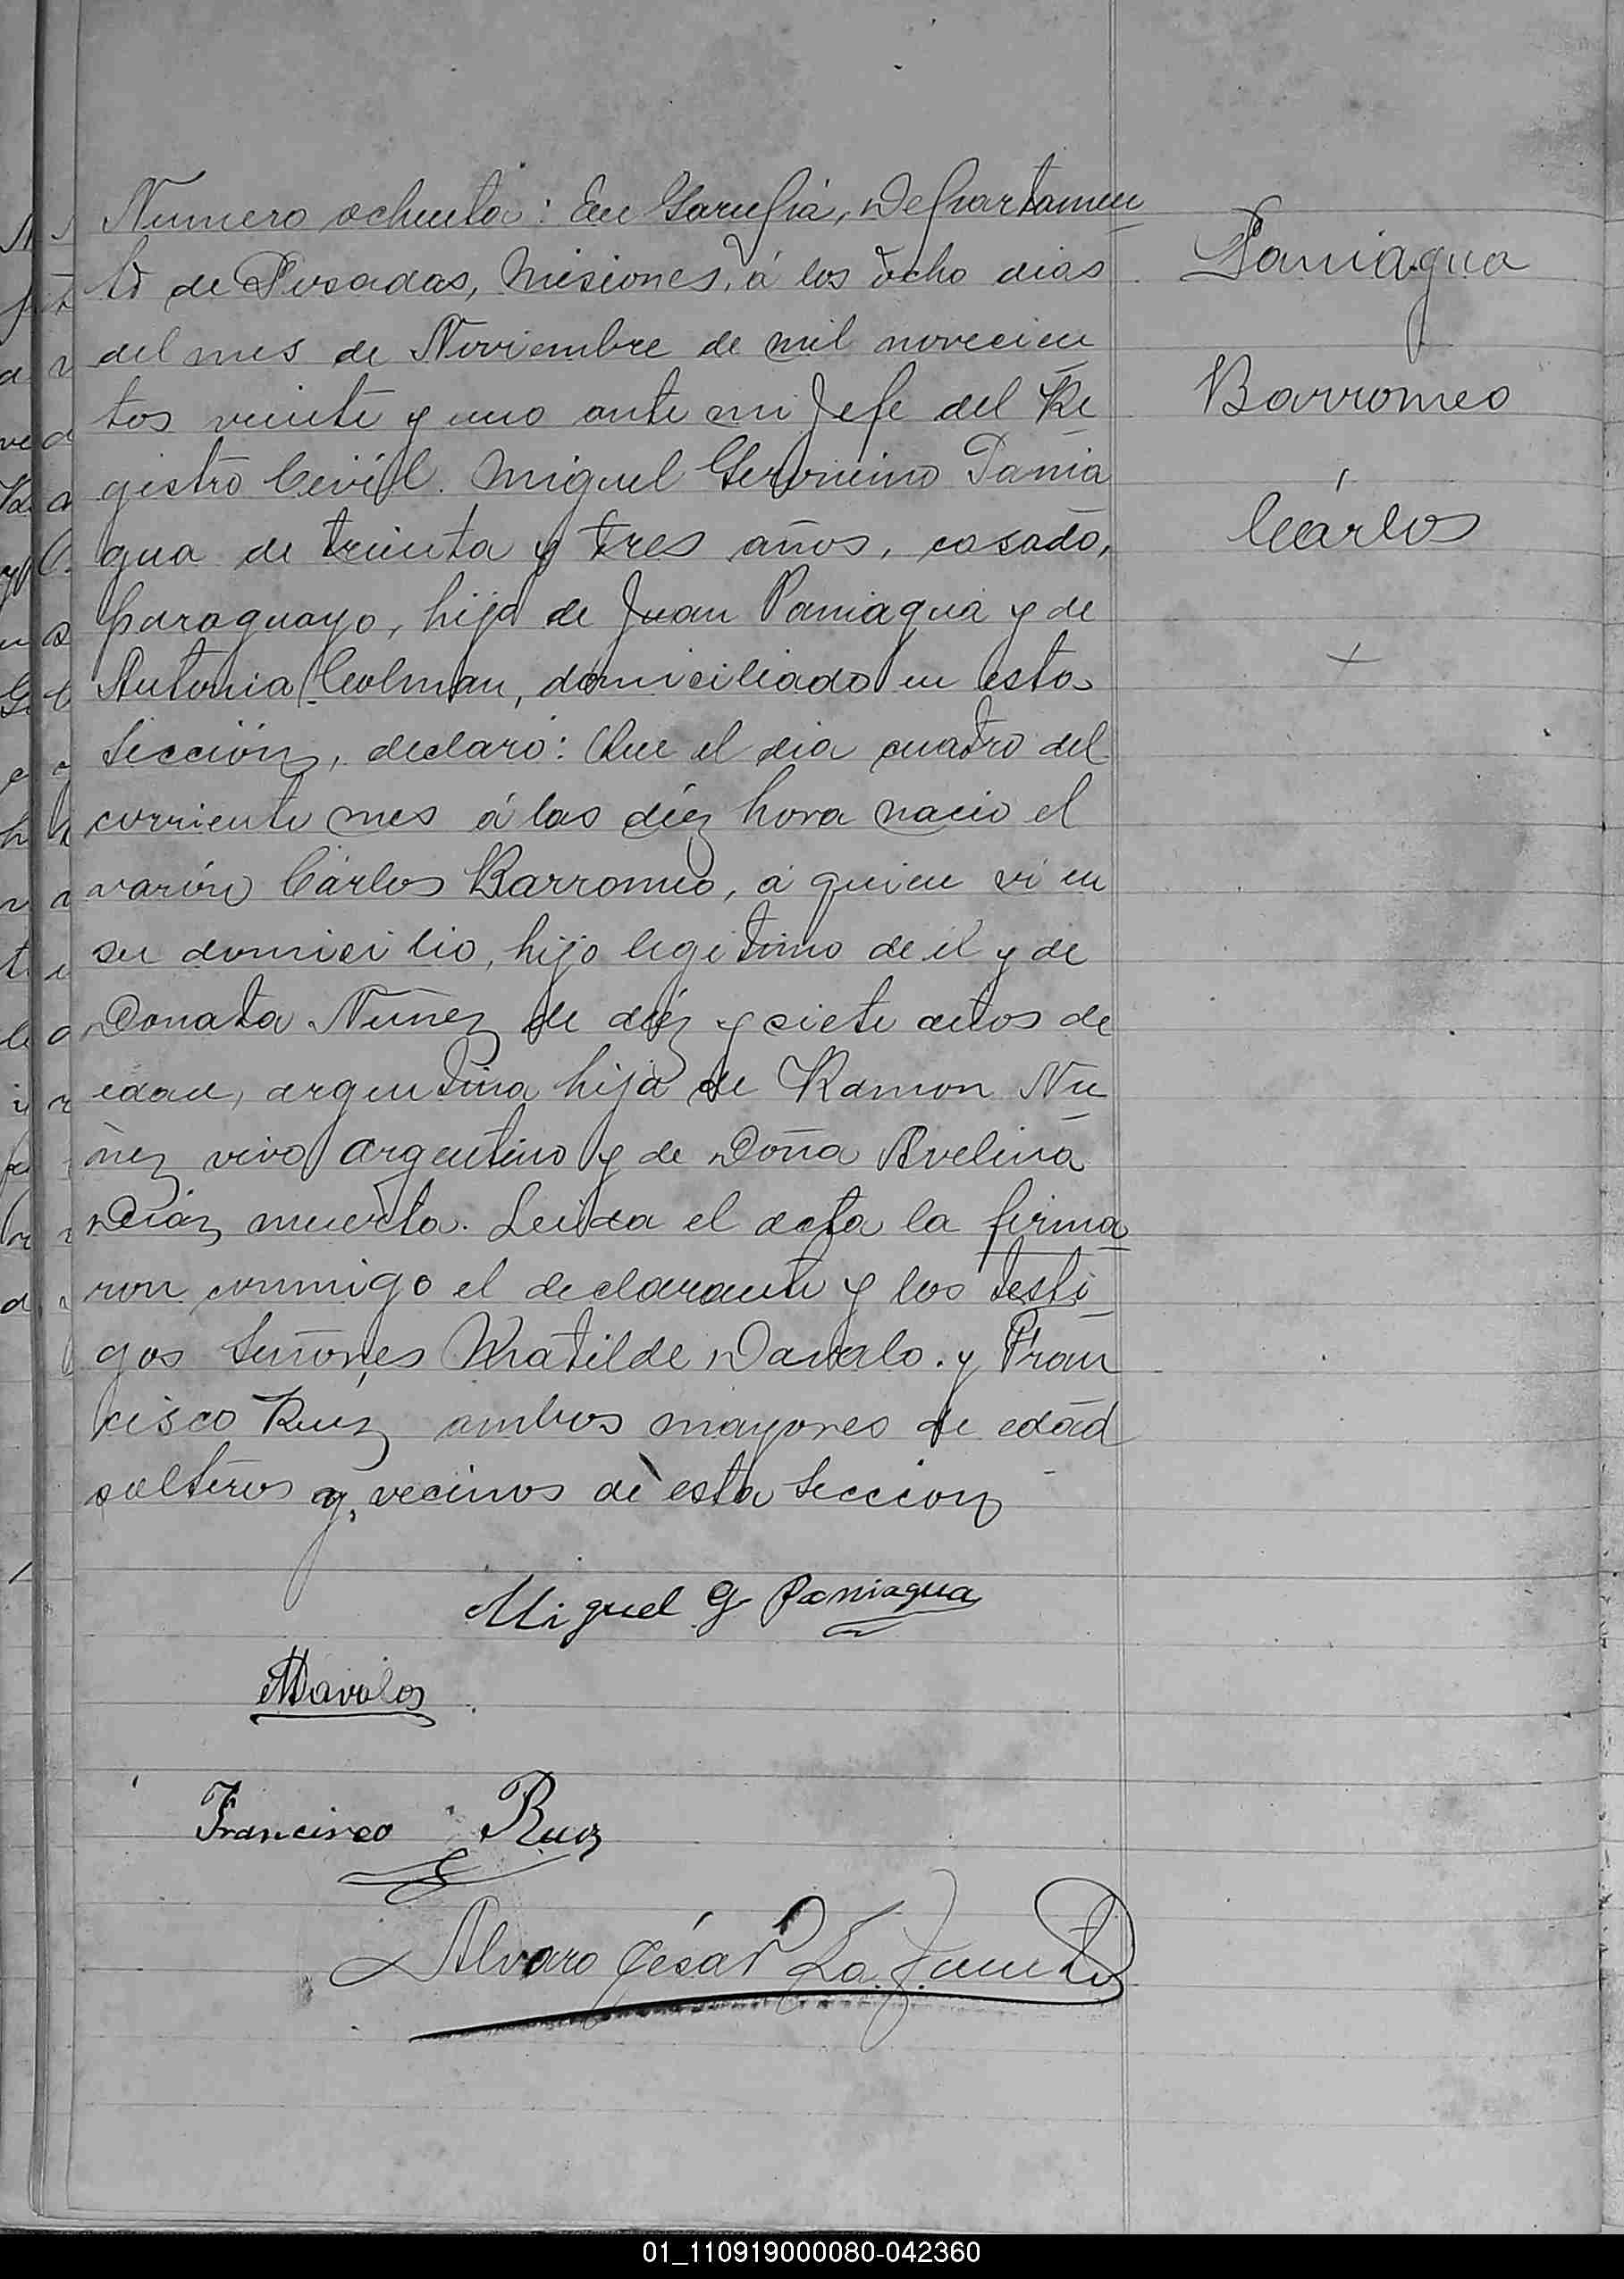 Numero ochenta: En Garupá, Departamen
to de Posadas, Misiones, á los ocho dias
del mes de Noviembre de mil novecien
tos veinte y uno ante mi Jefe del Re
gistro Civil. Miguel Geronimo Pania
gua de treinta y tres años, casado,
paraguayo, hijo de Juan Paniagua y de
Antonia Colman, domiciliado en esta
Sección, declaró: Que el dia cuatro del
corriente mes á las diéz hora nacio el
varón Cárlos Barromeo, á quien vi en
su domicilio, hijo legitimo de él y de
Donata Nuñez de diéz y siete años de
edad, argentina hija de Ramon Nu
ñez vivo argentino y de Doña Avelina
Diáz muerta. Leida el acta la firma
ron conmigo el declarante y los testi
gos Señores Matilde Davalo. y Fran
cisco Ruiz ambos mayores de edad
solteros y vecinos de esta Sección
Paniagua
Barromeo
Cárlos
Miguel G Paniagua
MDavalos
Francisco Ruiz
Alvaro César La Fuente
01_110919000080-042360